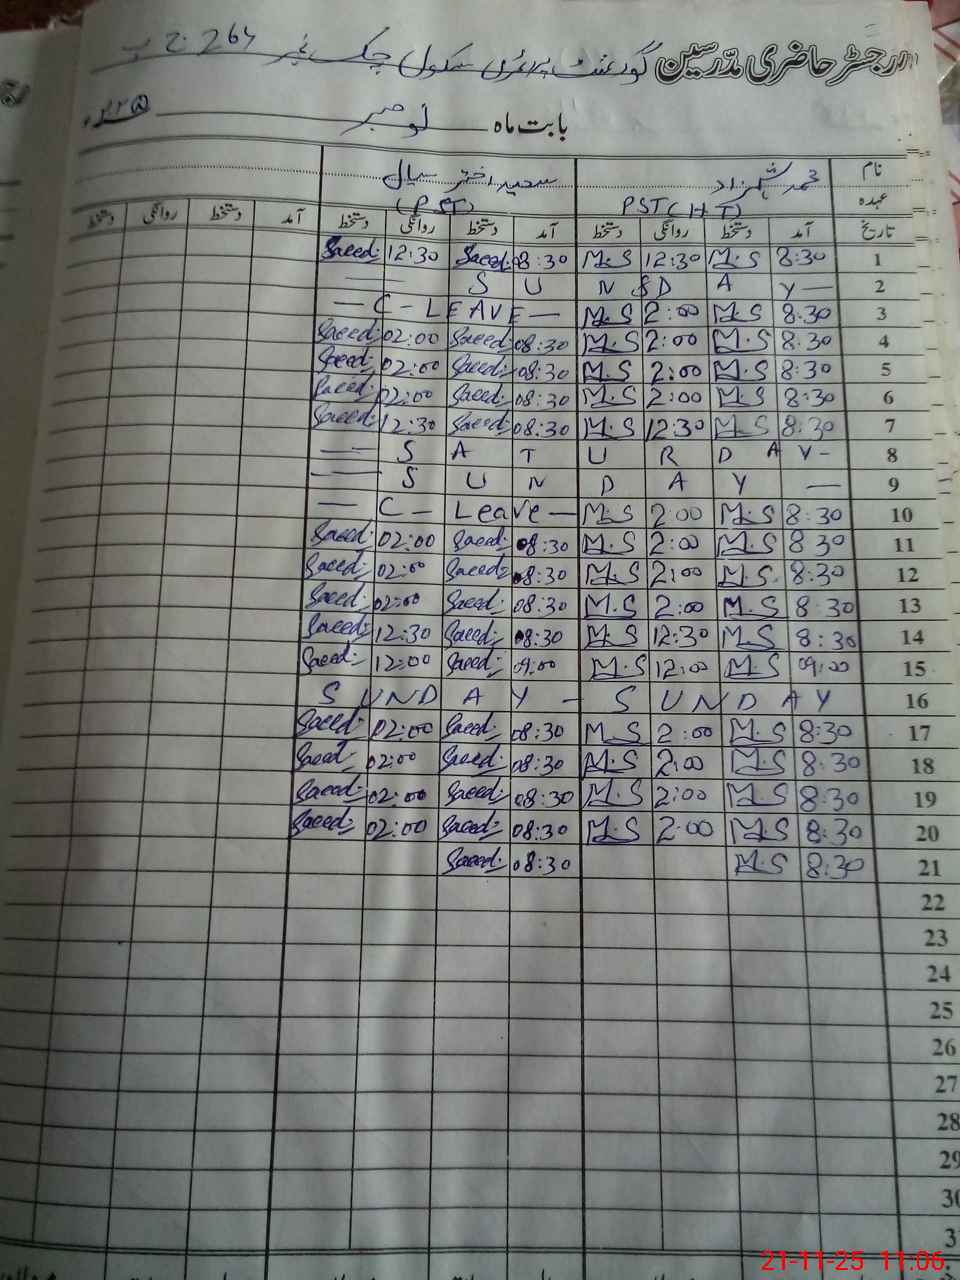 رجسٹر حاضری مدّرسین گورنمنٹ پرائمری سکول چک نمبر 264 ج ب
بابت ماہ نومبر
نام محمد شہزاد سعید اختر سیال
عہدہ PST(H.T) (PST)
تاریخ آمد دستخط روانگی دستخط آمد دستخط روانگی دستخط آمد دستخط روانگی دستخط
1 8:30 M.S 12:30 M.S 08:30 Saeed 12:30 Saeed
2 — S U N D A Y —
3 8:30 M.S 2:00 M.S — C - LEAVE —
4 8:30 M.S 2:00 M.S 08:30 Saeed 02:00 Saeed
5 8:30 M.S 2:00 M.S 08:30 Saeed 02:00 Saeed
6 8:30 M.S 2:00 M.S 08:30 Saeed 02:00 Saeed
7 8:30 M.S 12:30 M.S 08:30 Saeed 12:30 Saeed
8 — S A T U R D A Y -
9 — S U N D A Y —
10 8:30 M.S 2:00 M.S — C - Leave —
11 8:30 M.S 2:00 M.S 08:30 Saeed 02:00 Saeed
12 8:30 M.S. 2:00 M.S 08:30 Saeed 02:00 Saeed
13 8:30 M.S 2:00 M.S 08:30 Saeed 02:00 Saeed
14 8:30 M.S 12:30 M.S 08:30 Saeed 12:30 Saeed
15 09:00 M.S 12:00 M.S 09:00 Saeed 12:00 Saeed
16 S U N D A Y - S U N D A Y
17 8:30 M.S 2:00 M.S 08:30 Saeed 02:00 Saeed
18 8:30 M.S 2:00 M.S 08:30 Saeed 02:00 Saeed
19 8:30 M.S 2:00 M.S 08:30 Saeed 02:00 Saeed
20 8:30 M.S 2:00 M.S 08:30 Saeed 02:00 Saeed
21 8:30 M.S 08:30 Saeed
22
23
24
25
26
27
28
29
30
21-11-25 11:06